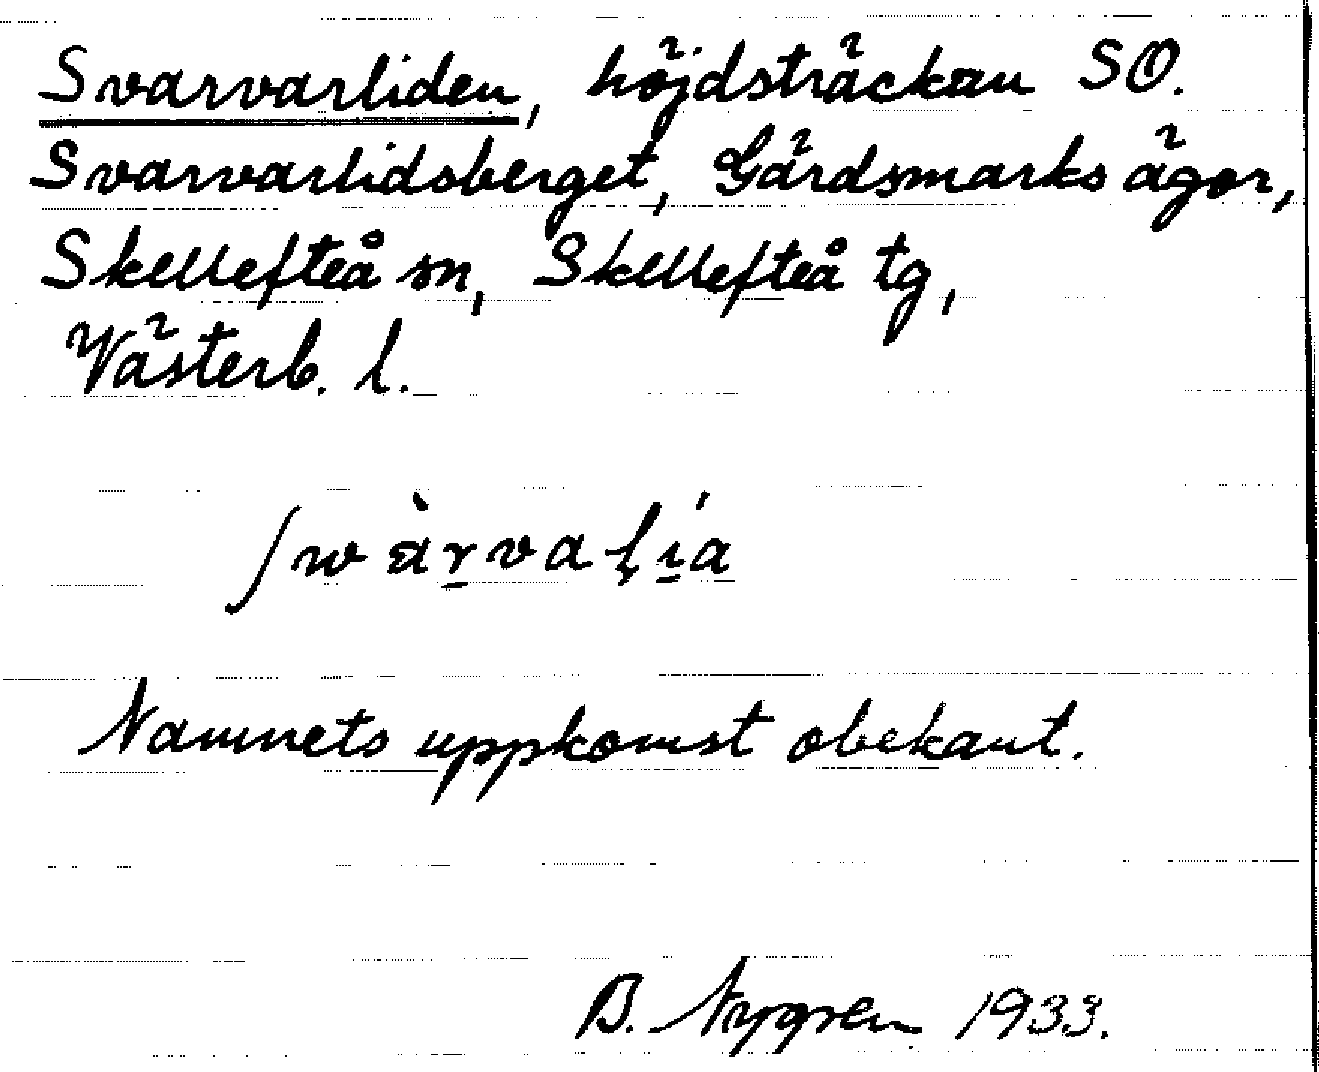 Svarvarliden, höjdsträckan SO.
Svarvarlidsberget, Gärdsmarks ägor,
Skellefteå sn, Skellefteå tg,
Västerb. l.
ʃwàr̲vaḷı̲́a
Namnets uppkomst obekant.
B. Nygren 1933.